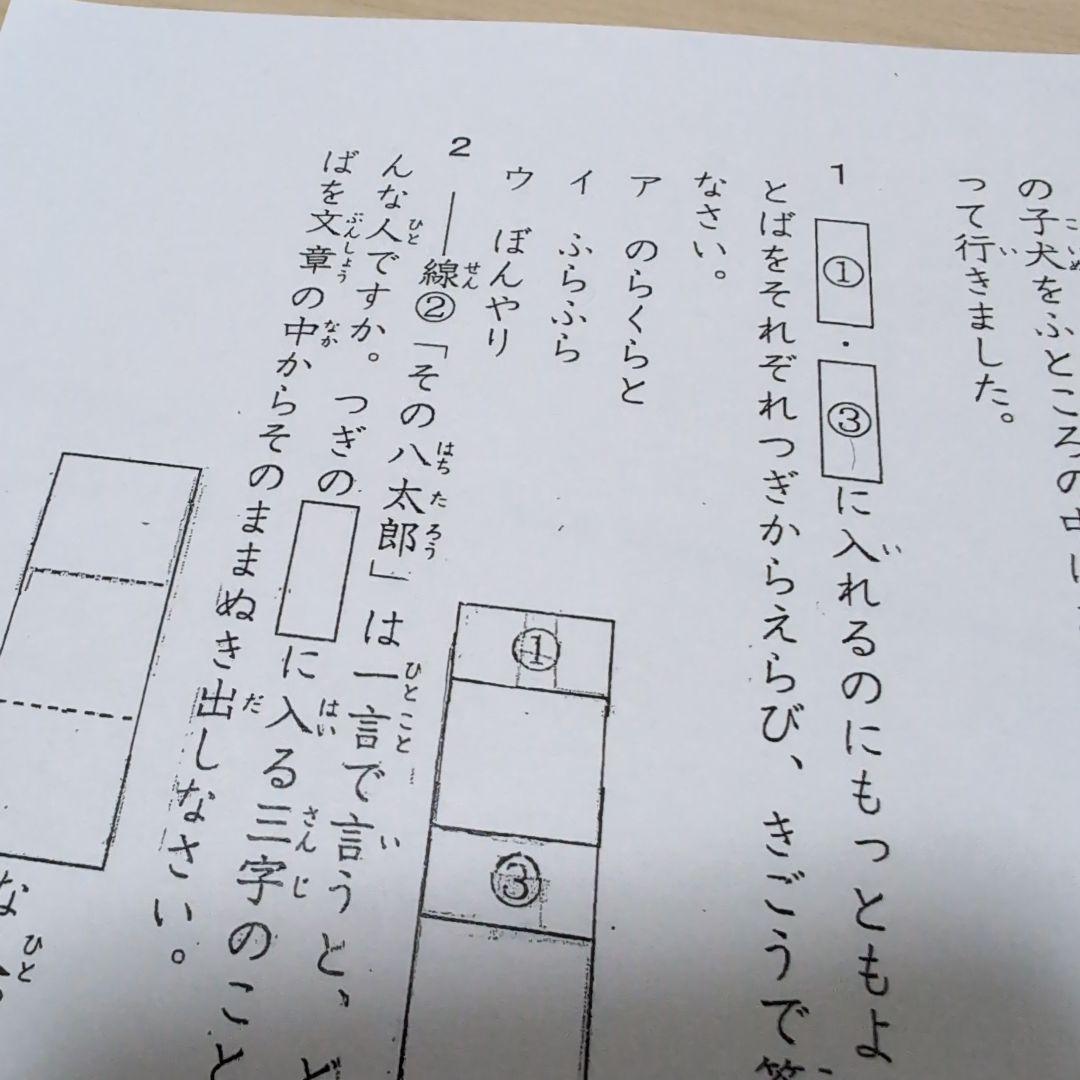 の子犬をふところの中に
って行きました。
1 ①・③に入れるのにもっともよ
とばをそれぞれつぎからえらび、きごうで
なさい。
ア のらくらと
イ ふらふら
ウ ぼんやり
①
③
2 ――線②「その八太郎」は一言で言うと、ど
んな人ですか。つぎの に入る三字のこと
ばを文章の中からそのままぬき出しなさい。